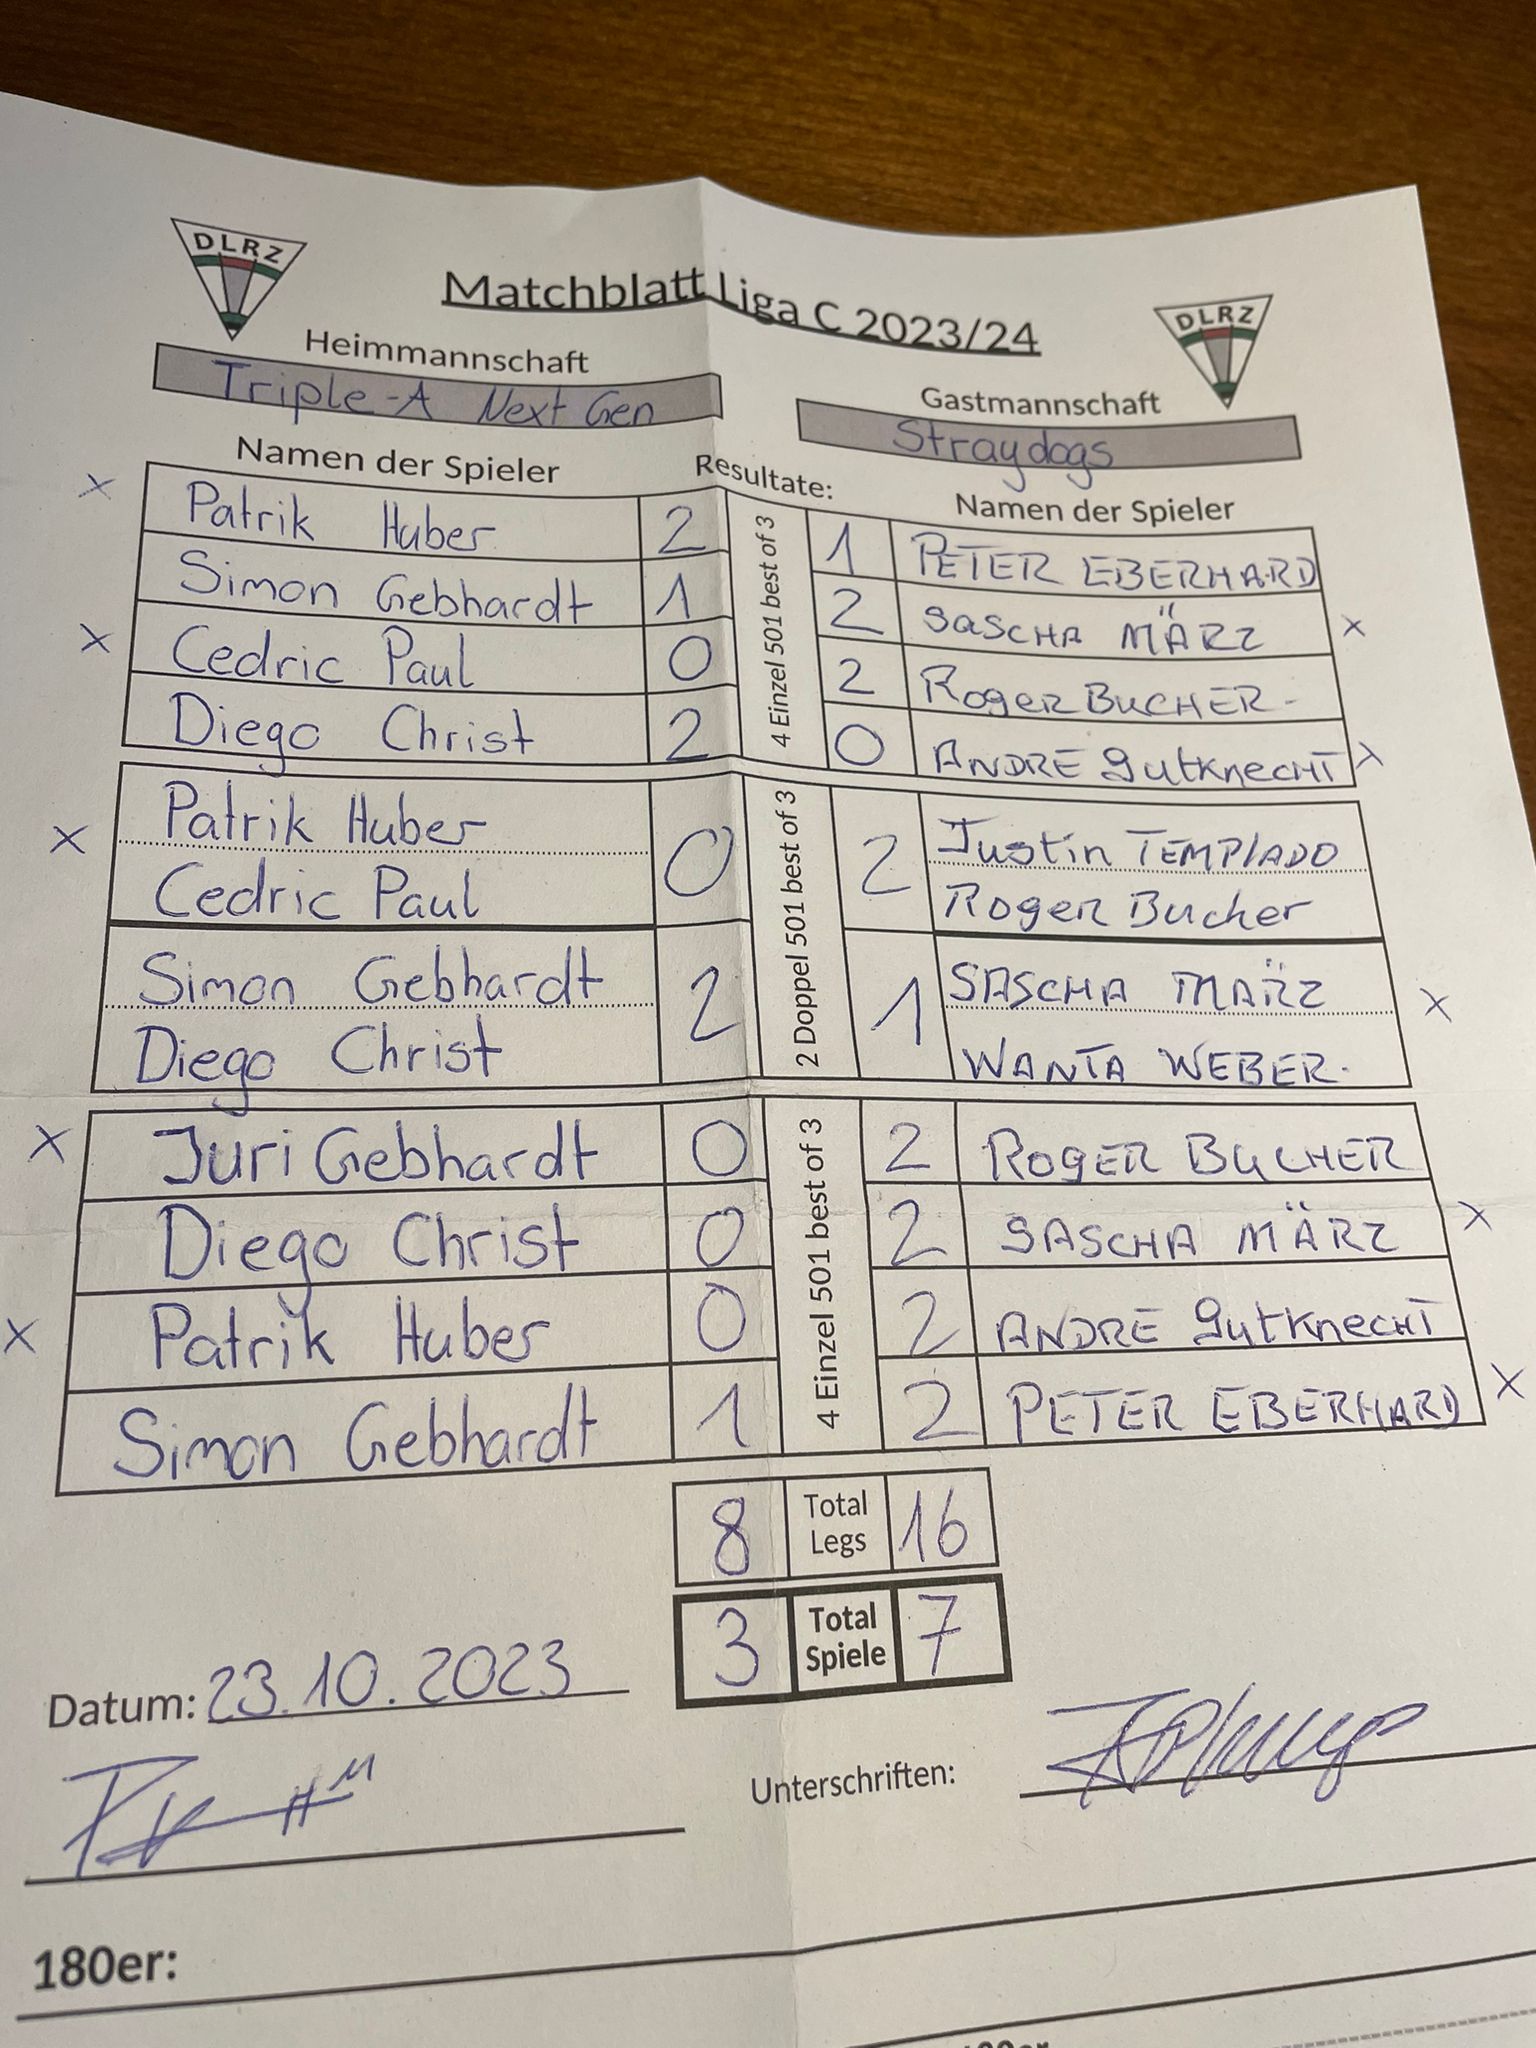 DLRZ
Matchblatt Liga C 2023/24
DLRZ
Heimmannschaft
Gastmannschaft
Triple-A Next Gen
Straydogs
Namen der Spieler
Resultate:
Namen der Spieler
x Patrik Huber 2 1 PETER EBERHARD
Simon Gebhardt 1 2 SASCHA MÄRZ x
x Cedric Paul 0 2 Roger BUCHER -
Diego Christ 2 0 ANDRE gutknecht x
4 Einzel 501 best of 3
x Patrik Huber 0 2 Justin TEMPLADO
Cedric Paul Roger Bucher
Simon Gebhardt 2 1 SASCHA MÄRZ x
Diego Christ WANTA WEBER.
2 Doppel 501 best of 3
x Juri Gebhardt 0 2 ROGER BUCHER
Diego Christ 0 2 SASCHA MÄRZ x
x Patrik Huber 0 2 ANDRE gutknecht
Simon Gebhardt 1 2 PETER EBERHARD x
4 Einzel 501 best of 3
8 Total Legs 16
3 Total Spiele 7
Datum: 23.10.2023
Unterschriften:
180er: